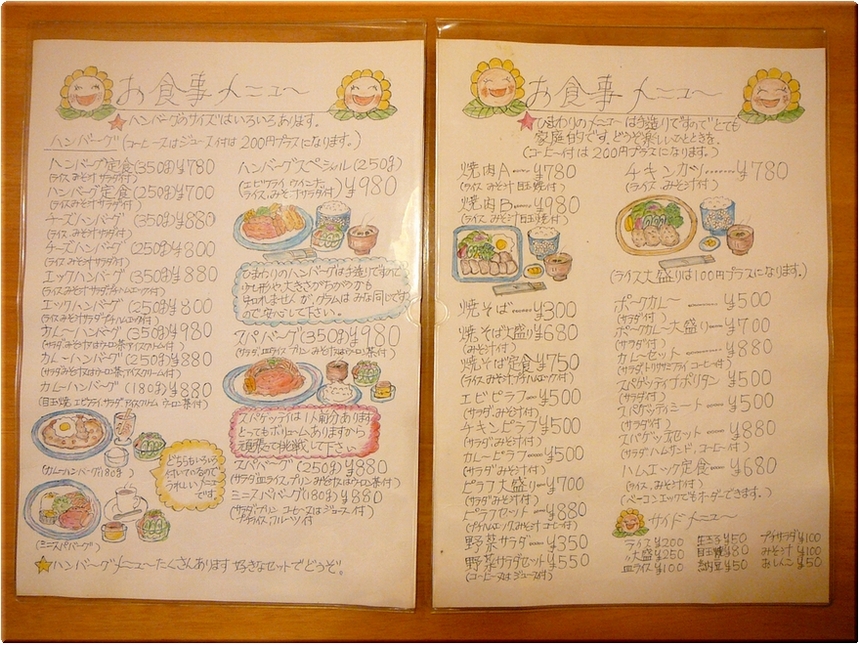 お食事メニュー
★ハンバーグのサイズはいろいろあります。
ハンバーグ(コーヒー又はジュース付は200円プラスになります。)
ハンバーグ定食(350g)¥780
(ライスみそ汁サラダ付)
ハンバーグ定食(250g)¥700
(ライスみそ汁サラダ付)
チーズハンバーグ(350g)¥880
(ライスみそ汁サラダ付)
チーズハンバーグ(250g)¥800
(ライスみそ汁サラダ付)
エッグハンバーグ(350g)¥880
(ライスみそ汁サラダハムエッグ付)
エッグハンバーグ(250g)¥800
(ライスみそ汁サラダハムエッグ付)
カレーハンバーグ(350g)¥980
(サラダみそ汁又はウーロン茶アイスクリーム付)
カレーハンバーグ(250g)¥880
(サラダみそ汁又はウーロン茶アイスクリーム付)
カレーハンバーグ(180g)¥880
(目玉焼エビフライ、サラダ、アイスクリームウーロン茶付)
(カレーハンバーグ180g)
どちらもいろいろ
付いているので
うれしいメニュー
です。
(ミニスパバーグ)
ハンバーグスペシャル(250g)
¥980
(エビフライウインナー
ライス、みそ汁サラダ付)
ひまわりのハンバーグは手造りですので
少し形や、大きさがちがうかも
知れませんが、グラムはみな同じです
ので安心して下さい。
スパバーグ(350g)¥980
(サラダ、皿ライスプリンみそ汁又はウーロン茶付)
スパゲッティは1人前分あります
とってもボリュームありますから
頑張って挑戦して下さい
スパバーグ(250g)¥880
(サラダ皿ライス、プリンみそ汁又はウーロン茶付)
ミニスパバーグ(180g)¥880
(サラダプリンコーヒー又はジュース付)
プチライスフルーツ付
★ハンバーグメニューたくさんあります好きなセットでどうぞ。
お食事メニュー
★ひまわりのメニューは手造りですのでとても
家庭的です。どうぞ楽しいひとときを。
(コーヒー付は200円プラスになります。)
焼肉A…¥780
(ライスみそ汁目玉焼付)
焼肉B…¥980
(ライスみそ汁目玉焼付)
焼そば……¥300
焼そば大盛り¥680
(みそ汁付)
焼そば定食¥750
(ライスみそ汁プチハムエッグ付)
エビピラフ¥500
(サラダ、みそ汁付)
チキンピラフ¥500
(サラダ、みそ汁付)
カレーピラフ…¥500
(サラダみそ汁付)
ピラフ大盛り…¥700
(サラダみそ汁付)
ピラフセット…¥880
(プチハムエッグみそ汁コーヒー付)
野菜サラダ…¥350
野菜サラダセット¥550
(コーヒー又はジュース付)
チキンカツ……¥780
(ライスみそ汁付)
(ライス大盛りは100円プラスになります。)
ポークカレー……¥500
(サラダ付)
ポークカレー大盛り…¥700
(サラダ付)
カレーセット………¥880
(サラダトリササミフライコーヒー付)
スパゲッティナポリタン¥500
(サラダ付)
スパゲッティミート…¥500
(サラダ付)
スパゲッティセット…¥880
(サラダハムサンド、コーヒー付)
ハムエッグ定食…¥680
(ライス、みそ汁付)
(ベーコンエッグでもオーダーできます。)
サイドメニュー
ライス¥200 生玉子¥50 プチサラダ¥100
〃大盛¥250 目玉焼¥80 みそ汁¥100
皿ライス¥100 納豆¥50 おしんこ¥50